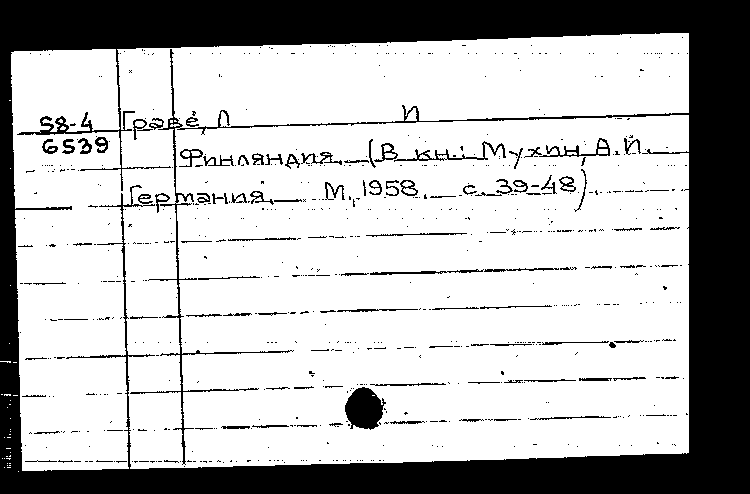 58-4 Граве, Л И
6539 Финляндия. (В кн.: Мухин, А.И.
Германия. М., 1958. с. 39-48).